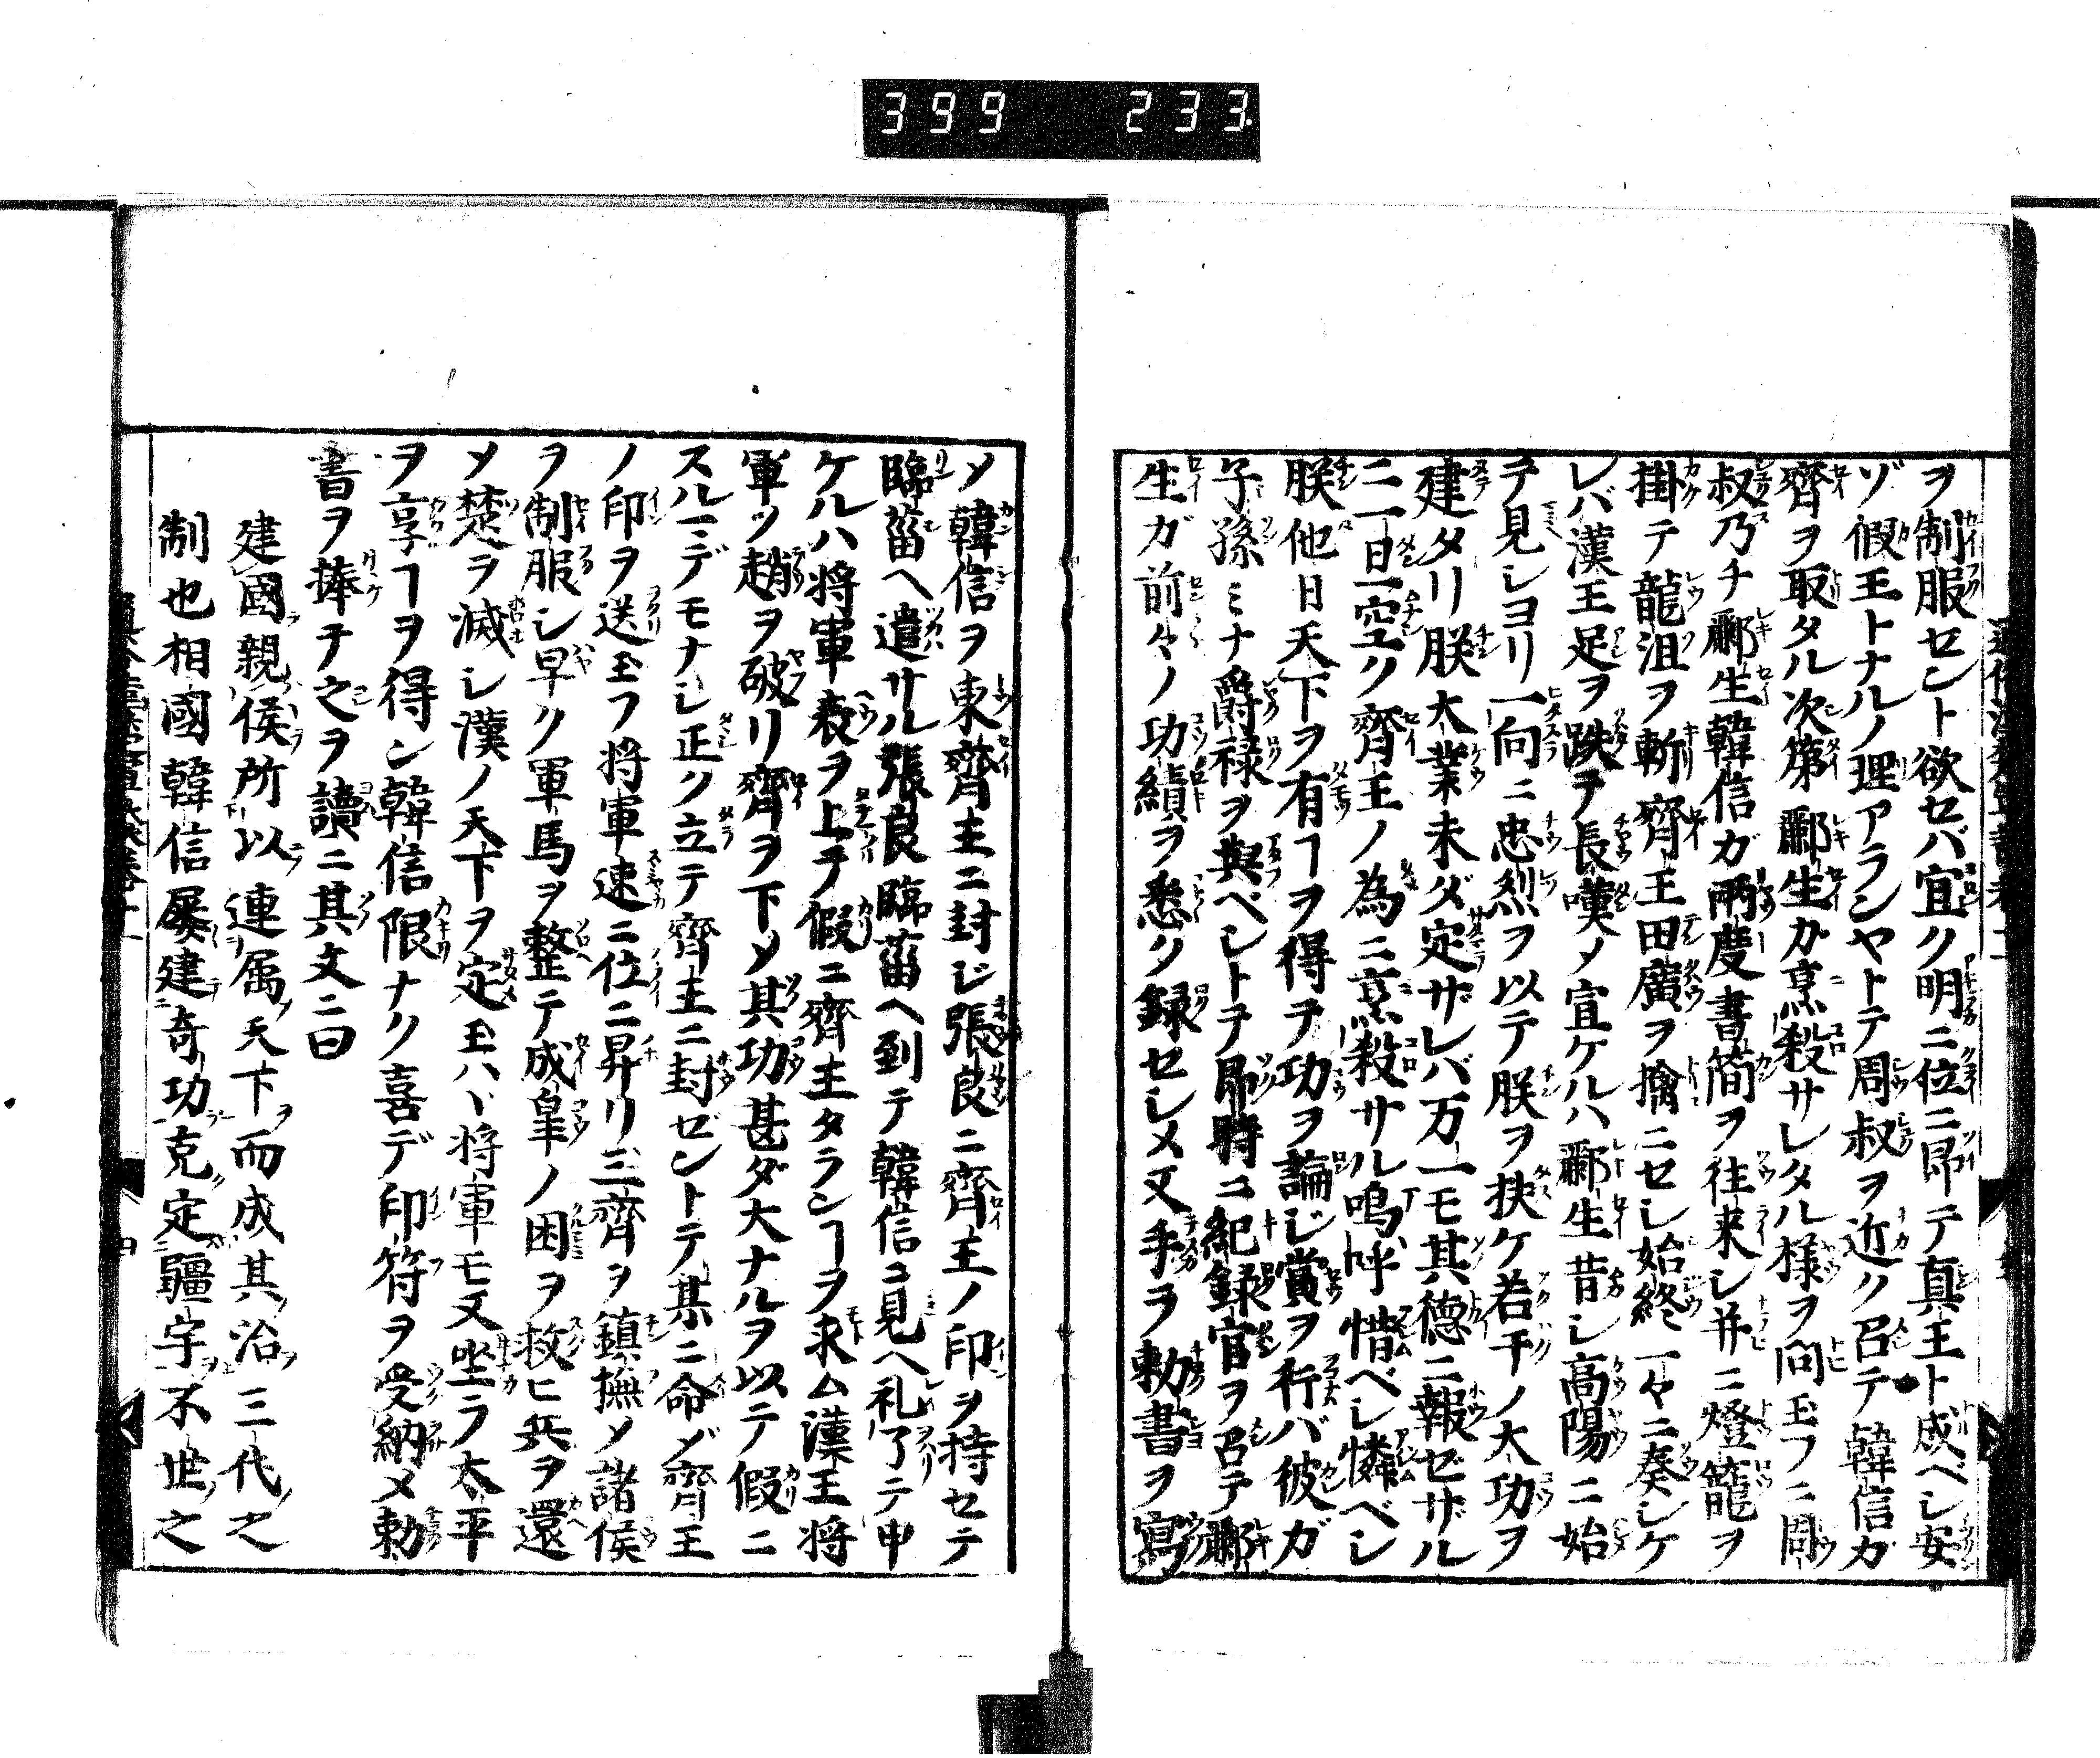 399 233
ヲ制服セント欲セバ宜ク明ニ位ニ即テ真王ト成ベシ安
ゾ假王トナルノ理アランヤトテ周叔ヲ近ク召テ韓信カ
齊ヲ取タル次第酈生カ烹殺サレタル様ヲ問玉フニ周
叔乃チ酈生韓信ガ兩度書簡ヲ往来シ并ニ燈籠ヲ
掛テ龍沮ヲ斬齊王田廣ヲ擒ニセシ始終一々ニ奏シケ
レバ漢王足ヲ跌テ長嘆メ宣ケルハ酈生昔シ高陽ニ始
テ見シヨリ一向ニ忠烈ヲ以テ朕ヲ扶ケ若干ノ大功ヲ
建タリ朕大業未ダ定ザレバ万一モ其德ニ報ゼザル
ニ一日空ク齊王ノ為ニ烹殺サル嗚呼惜ベシ憐ベシ
朕他日天下ヲ有ヿヲ得テ功ヲ論ジ賞ヲ行バ彼ガ
子孫ミナ爵禄ヲ與ベシトテ即時ニ紀録官ヲ召テ酈
生ガ前々ノ功績ヲ悉ク録セシメ又手ラ勅書ヲ寫
メ韓信ヲ東齊王ニ封ジ張良ニ齊王ノ印ヲ持セテ
臨菑ヘ遣サル張良臨菑ヘ到テ韓信ニ見ヘ礼了テ申
ケルハ将軍表ヲ上テ假ニ齊王タランヿヲ求ム漢王将
軍ツ趙ヲ破リ齊ヲ下メ其功甚ダ大ナルヲ以テ假ニ
スルニデモナシ正ク立テ齊王ニ封ゼントテ某ニ命ジ齊王
ノ印ヲ送玉フ将軍速ニ位ニ昇リ三齊ヲ鎮撫メ諸侯
ヲ制服シ早ク軍馬ヲ整テ成皐ノ困ヲ救ヒ兵ヲ還
メ楚ヲ滅シ漢ノ天下ヲ定玉ハヾ将軍モ又坐ラ太平
ヲ享ヿヲ得ン韓信限ナク喜デ印符ヲ受納メ勅
書ヲ捧テ之ヲ讀ニ其文ニ曰
建國親侯所以連属天下而成其治三代之
制也相國韓信屡建奇功克定疆宇不世之